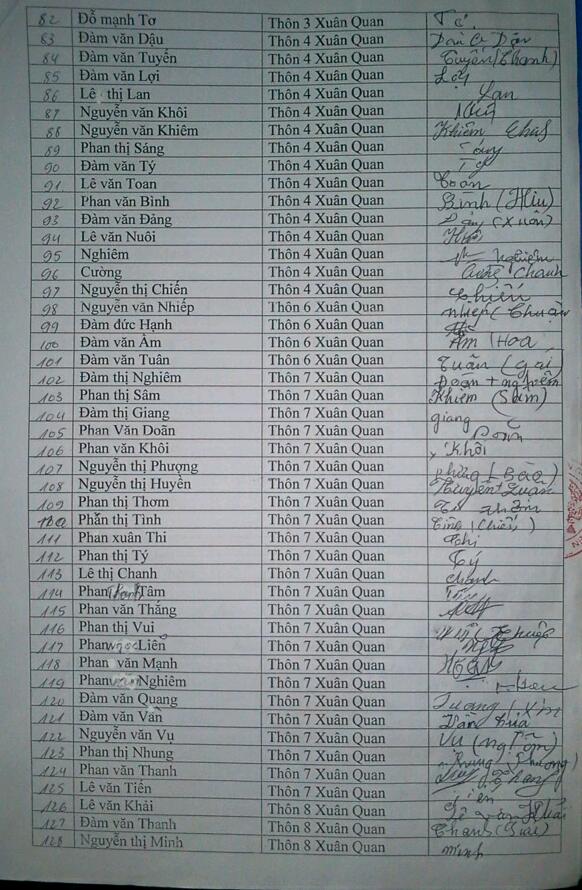 82 Đỗ mạnh Tơ Thôn 3 Xuân Quan Tơ
83 Đàm văn Dậu Thôn 4 Xuân Quan
84 Đàm văn Tuyến Thôn 4 Xuân Quan Tuyến (Thanh)
85 Đàm văn Lợi Thôn 4 Xuân Quan Lợi
86 Lê thị Lan Thôn 4 Xuân Quan Lan
87 Nguyễn văn Khôi Thôn 4 Xuân Quan
88 Nguyễn văn Khiêm Thôn 4 Xuân Quan Khiêm
89 Phan thị Sáng Thôn 4 Xuân Quan
90 Đàm văn Tý Thôn 4 Xuân Quan Tý
91 Lê văn Toan Thôn 4 Xuân Quan Toan
92 Phan văn Bình Thôn 4 Xuân Quan Bình (Hiu)
93 Đàm văn Đảng Thôn 4 Xuân Quan
94 Lê văn Nuôi Thôn 4 Xuân Quan
95 Nghiêm Thôn 4 Xuân Quan Nghiêm
96 Cường Thôn 4 Xuân Quan Cường Chanh
97 Nguyễn thị Chiến Thôn 4 Xuân Quan Chiến
98 Nguyễn văn Nhiếp Thôn 6 Xuân Quan Nhiếp (
99 Đàm đức Hạnh Thôn 6 Xuân Quan
100 Đàm văn Âm Thôn 6 Xuân Quan Âm (Hoa
101 Đàm văn Tuân Thôn 6 Xuân Quan Tuân (gái)
102 Đàm thị Nghiêm Thôn 7 Xuân Quan Đoàn + nghiêm
103 Phan thị Sâm Thôn 7 Xuân Quan Khiêm (Sâm)
104 Đàm thị Giang Thôn 7 Xuân Quan giang
105 Phan Văn Doãn Thôn 7 Xuân Quan Doãn
106 Phan văn Khôi Thôn 7 Xuân Quan Khôi
107 Nguyễn thị Phượng Thôn 7 Xuân Quan
108 Nguyễn thị Huyền Thôn 7 Xuân Quan Huyền + Luân
109 Phan thị Thơm Thôn 7 Xuân Quan
110 Phẩn thị Tình Thôn 7 Xuân Quan
111 Phan xuân Thi Thôn 7 Xuân Quan Thi
112 Phan thị Tý Thôn 7 Xuân Quan Tý
113 Lê thị Chanh Thôn 7 Xuân Quan Chanh
114 Phan Tâm Thôn 7 Xuân Quan
115 Phan văn Thắng Thôn 7 Xuân Quan
116 Phan thị Vui Thôn 7 Xuân Quan
117 Phan ngọc Liên Thôn 7 Xuân Quan
118 Phan văn Mạnh Thôn 7 Xuân Quan
119 Phan văn Nghiêm Thôn 7 Xuân Quan
120 Đàm văn Quang Thôn 7 Xuân Quan
121 Đàm văn Vấn Thôn 7 Xuân Quan
122 Nguyễn văn Vụ Thôn 7 Xuân Quan Vụ
123 Phan thị Nhung Thôn 7 Xuân Quan Nhung (Phương)
124 Phan văn Thanh Thôn 7 Xuân Quan
125 Lê văn Tiến Thôn 7 Xuân Quan
126 Lê văn Khải Thôn 8 Xuân Quan Lê Văn Khải
127 Đàm văn Thanh Thôn 8 Xuân Quan
128 Nguyễn thị Minh Thôn 8 Xuân Quan Minh